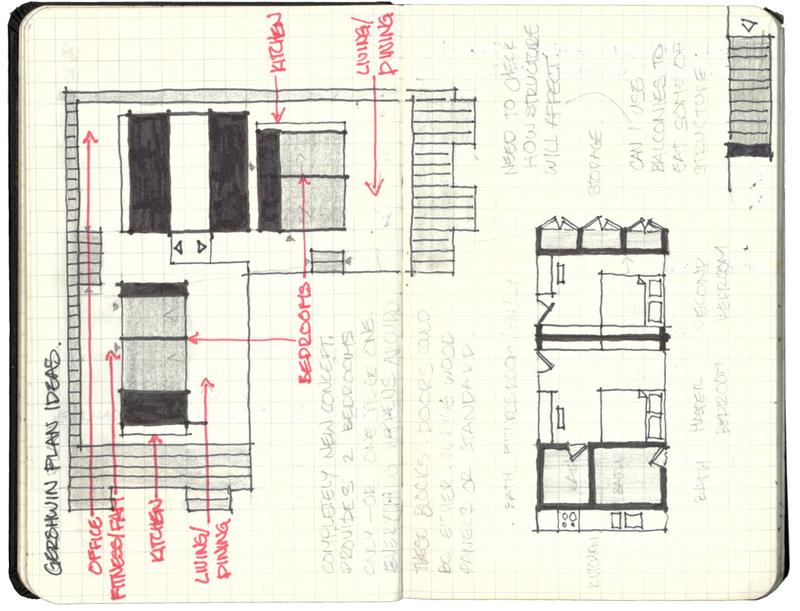 GERSHWIN PLAN IDEAS.
OFFICE
FITNESS/FAM
KITCHEN
LIVING/
DINING
BEDROOMS
KITCHEN
LIVING/
DINING
COMPLETELY NEW CONCEPT.
PROVIDES 2 BEDROOMS
ONLY - OR ONE HUGE ONE.
EVERYTHING HAPPENS AROUND
THESE BLOCKS. DOORS COULD
BE EITHER SLIDING WOOD
PANELS OR STANDARD.
NEED TO CHECK
HOW STRUCTURE
WILL AFFECT
STORAGE.
CAN I USE
BALCONIES TO
EAT SOME OF
STRUCTURE
BATH
BATH
KITCHEN
BATH
MASTER
BEDROOM
SECOND
BEDROOM